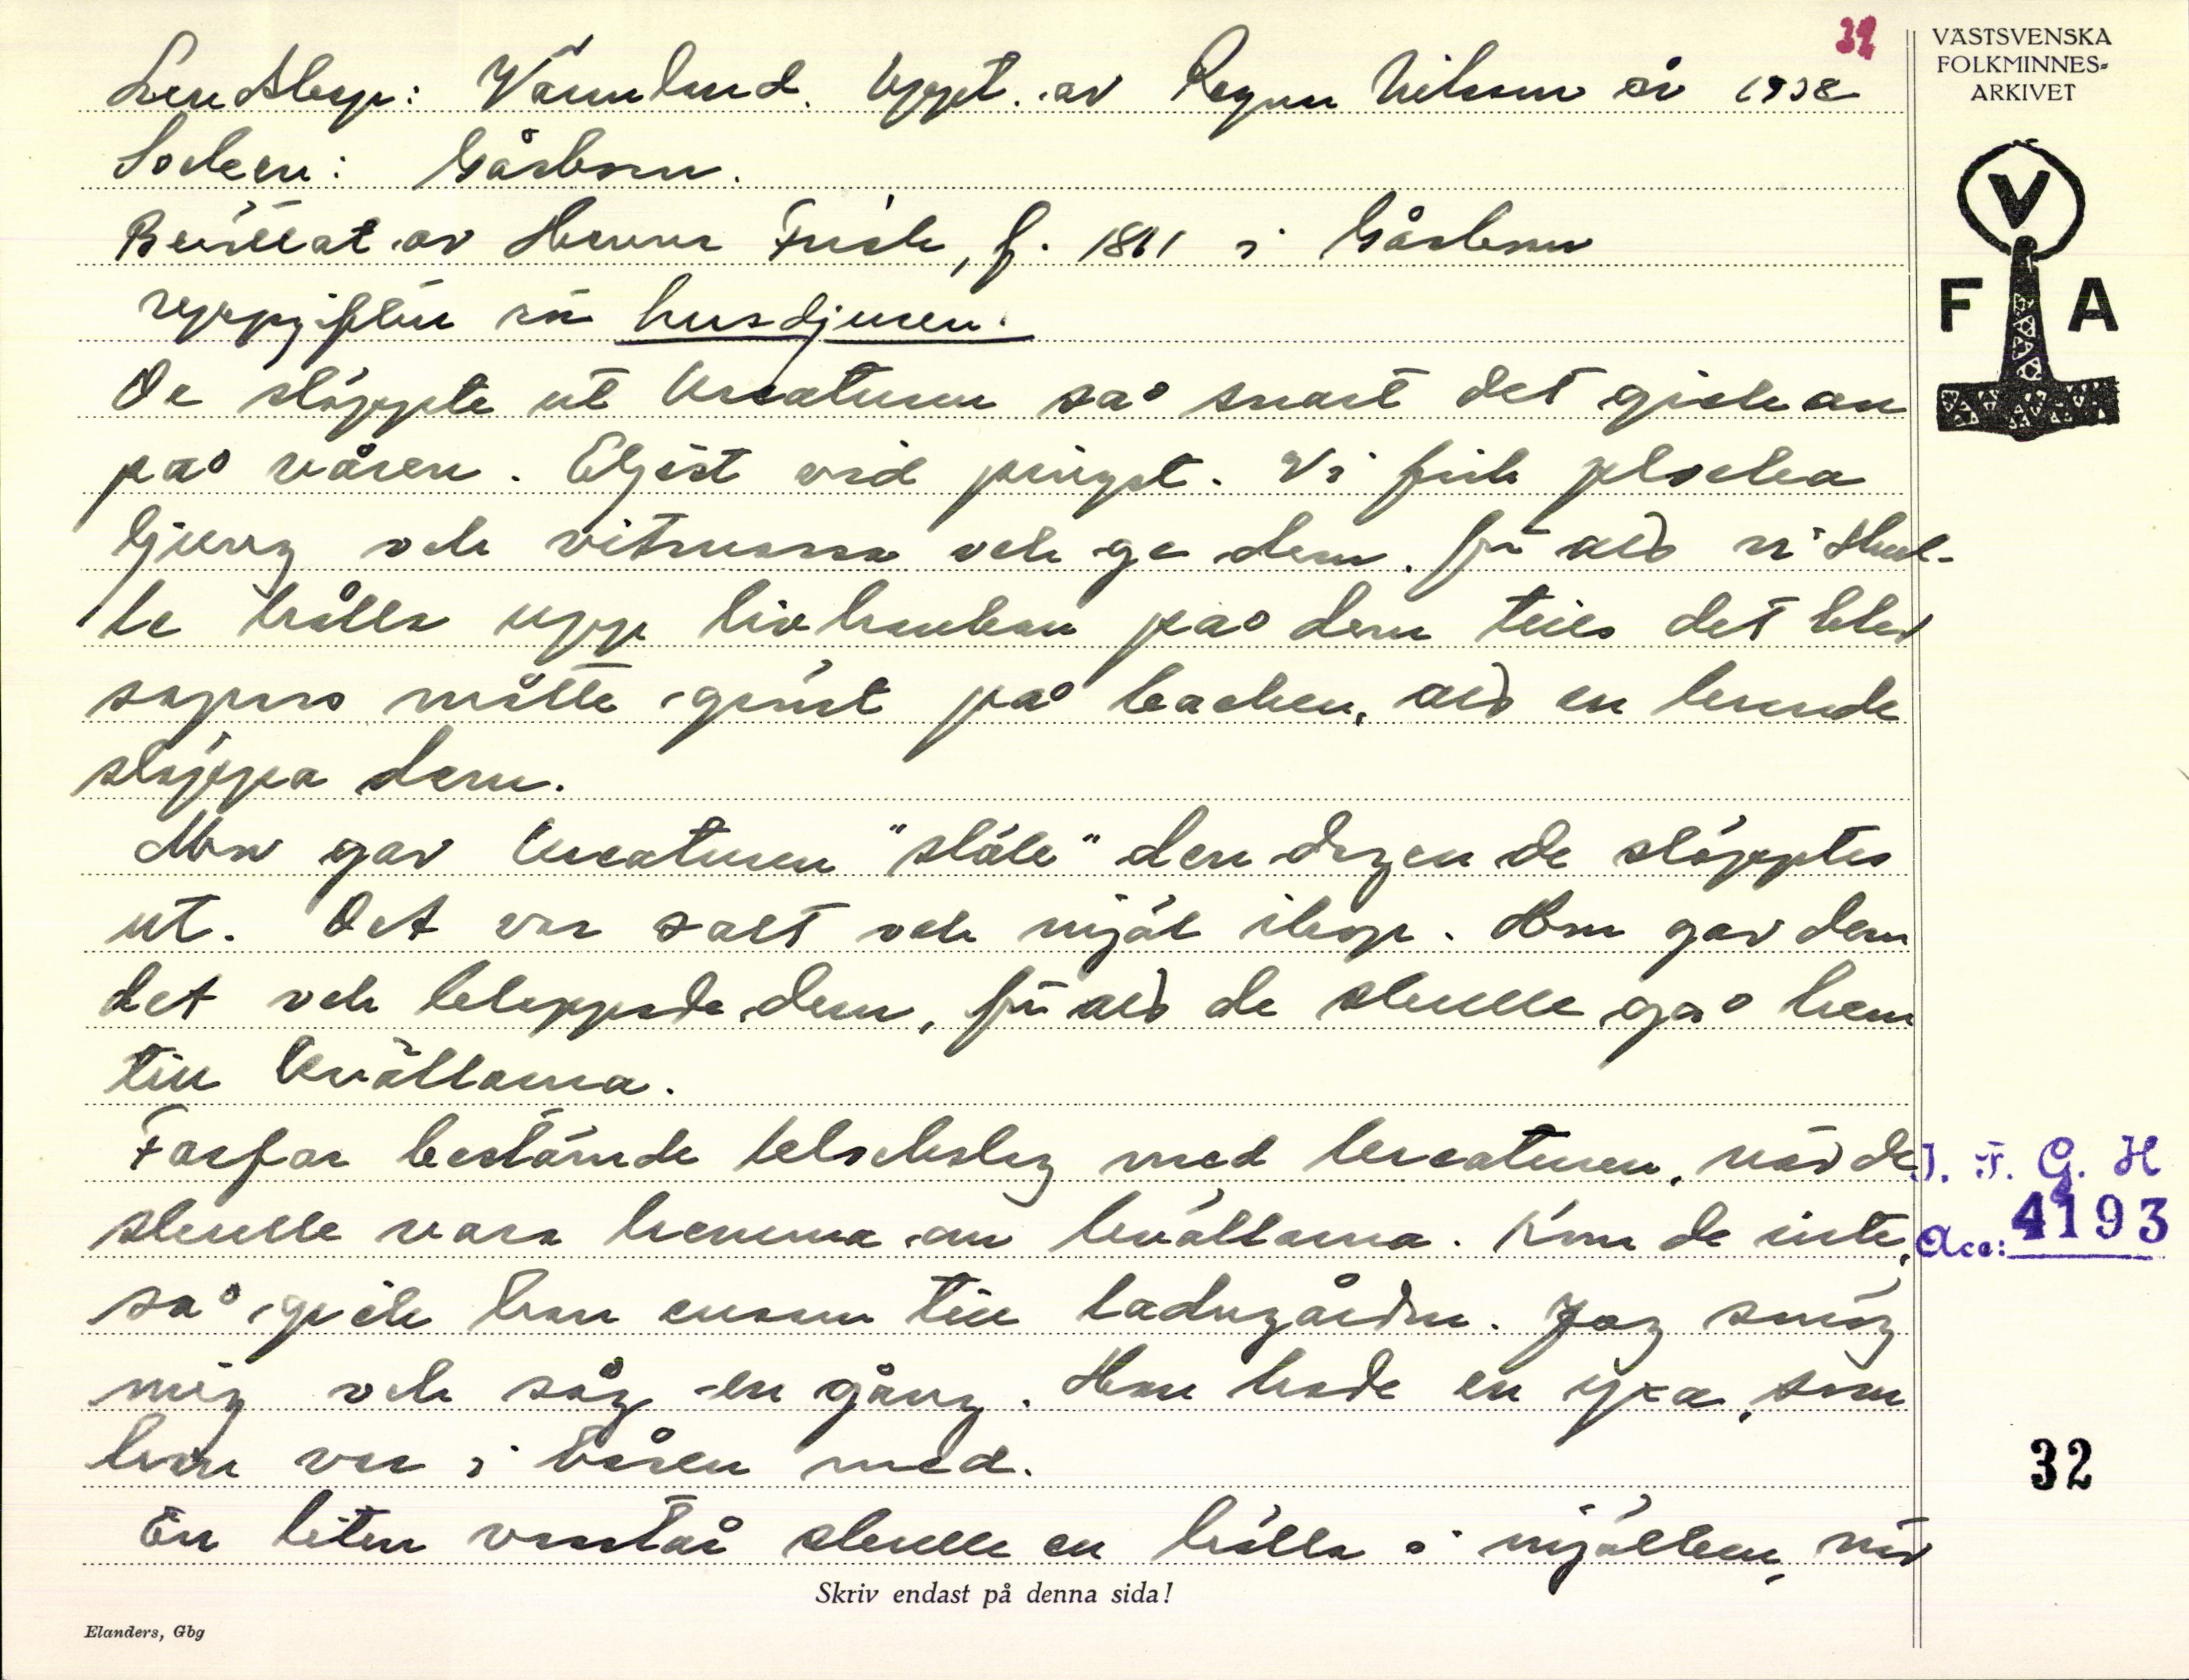 32
VÄSTSVENSKA
FOLKMINNES-
ARKIVET
V
F A
Landskap: Värmland. Uppt. av Ragnar Nilsson år 1938
Socken: Gåsborn.
Berättat av Frisk, f. 1861 i Gåsborn
uppgifter om husdjuren.
De släppte ut kreaturen så snart det gick an
på våren. Eljest vid pingst. Vi fick plocka
ljung och vitmossa och ge dem, för att vi skul-
le hålla upp livhanken på dem tills det blev
sapass mått gräst på backen, att en kunde
släppa dem.
Mor gav kreaturen "släke" den dagen de släpptes
ut. Det var salt och mjöl ihop. Hon gav dem
det och klappade dem, för att de skulle gå hem
till kvällarna.
Farfar bestämde klockslag med kreaturen, när de
skulle vara hemma om kvällarna. Kom de inte,
så gick han ensam till ladugården. Jag smög
mig och såg en gång. Han hade en yxa, som
han var i båsen med.
En liten skulle en hålla i mjölken, när
I. F. G. H
Acc: 4193
32
Skriv endast på denna sida!
Elanders, Gbg